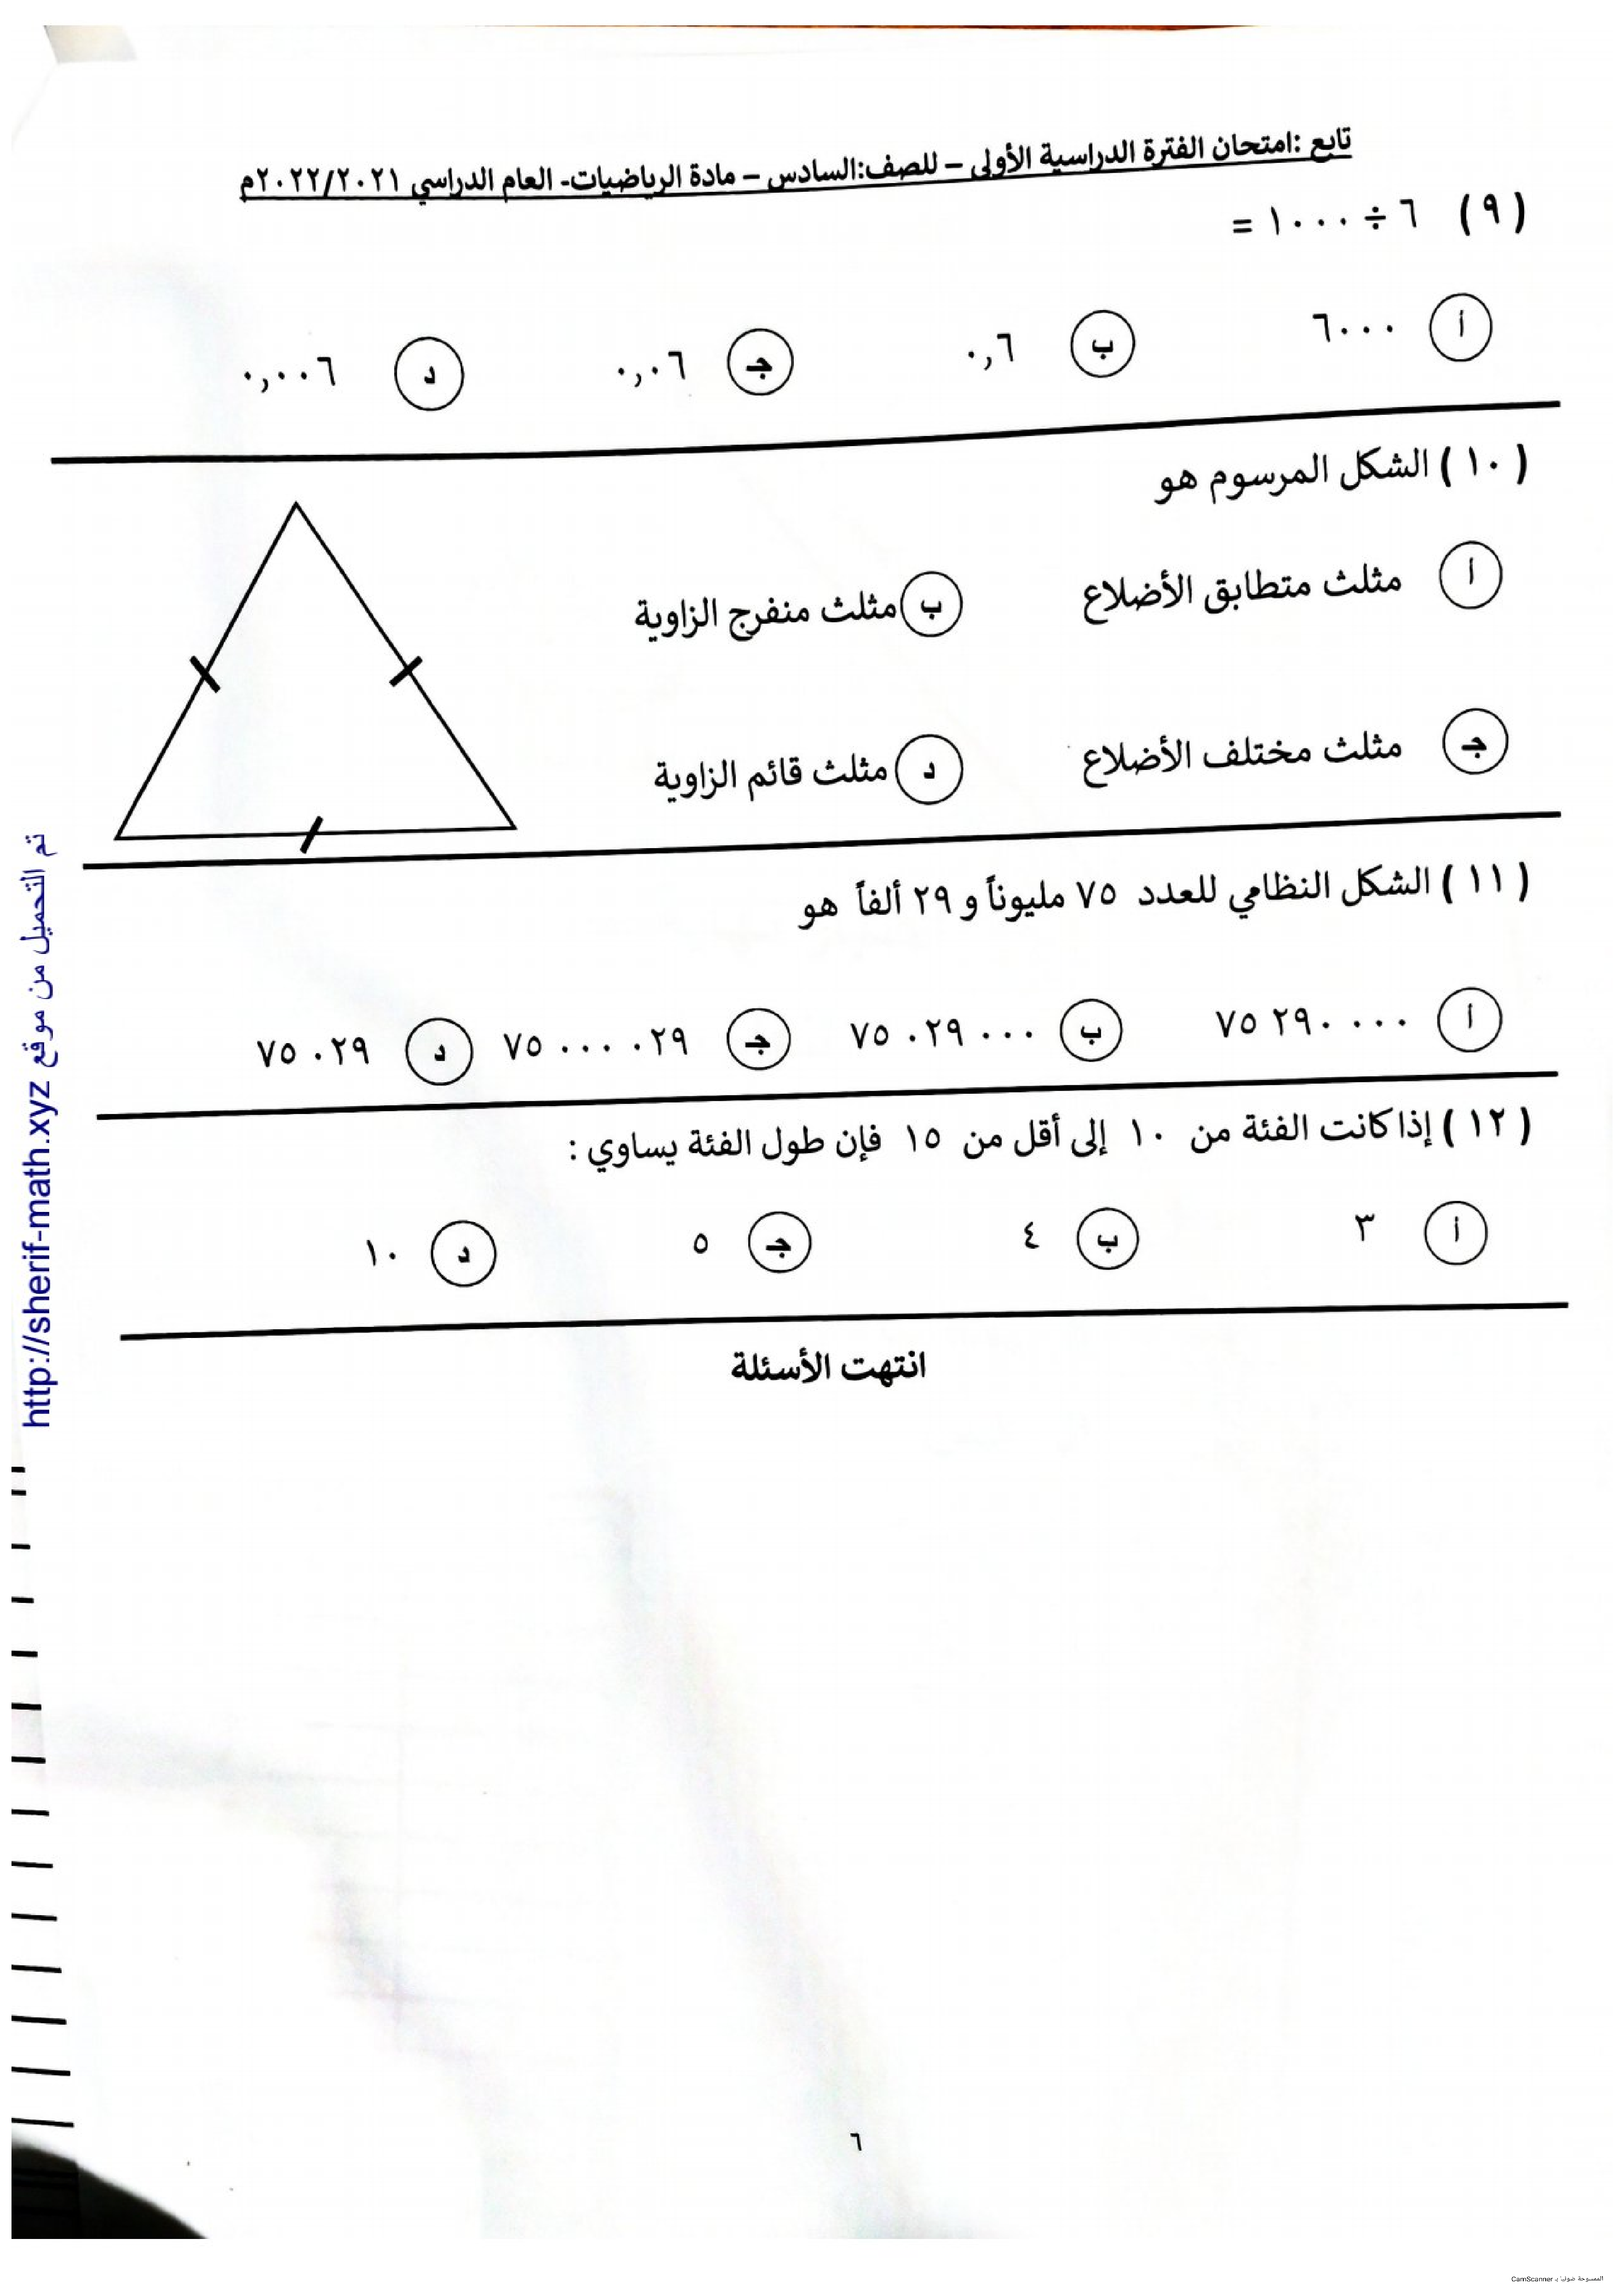 تابع :امتحان الفترة الدراسية الأولى – للصف:السادس – مادة الرياضيات- العام الدراسي ٢٠٢٢/٢٠٢١م
( ٩ ) ٦ ÷ ١٠٠٠ =
أ ٦٠٠٠ ب ٠,٦ جـ ٠,٠٦ د ٠,٠٠٦
( ١٠ ) الشكل المرسوم هو
أ مثلث متطابق الأضلاع ب مثلث منفرج الزاوية
جـ مثلث مختلف الأضلاع د مثلث قائم الزاوية
( ١١ ) الشكل النظامي للعدد ٧٥ مليوناً و ٢٩ ألفاً هو
أ ٧٥ ٢٩٠ ٠٠٠ ب ٧٥ ٠٢٩ ٠٠٠ جـ ٧٥ ٠٠٠ ٠٢٩ د ٧٥ ٠٢٩
( ١٢ ) إذا كانت الفئة من ١٠ إلى أقل من ١٥ فإن طول الفئة يساوي :
أ ٣ ب ٤ جـ ٥ د ١٠
انتهت الأسئلة
٦
تم التحميل من موقع http://sherif-math.xyz
الممسوحة ضوئيا بـ CamScanner